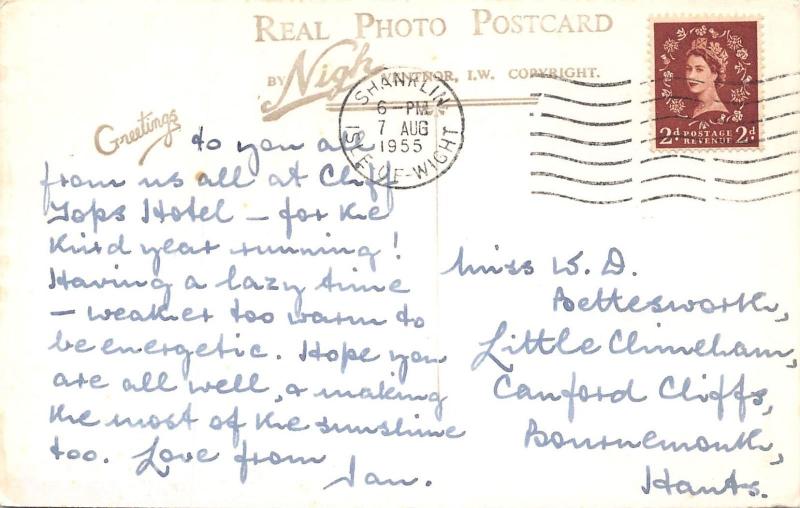 REAL PHOTO POSTCARD
BY Nigh VENTNOR, I.W. COPYRIGHT.
SHANKLIN
6 - PM
7 AUG
1955
ISLE-OF-WIGHT
2d POSTAGE 2d
REVENUE
Greetings
to you all
from us all at Cliff
Tops Hotel – for the
third year running!
Having a lazy time
– weather too warm to
be energetic. Hope you
are all well, & making
the most of the sunshine
too. Love from
Jan.
Miss W. D.
Bettesworth,
Little Clineham,
Canford Cliffs,
Bournemouth,
Hants.